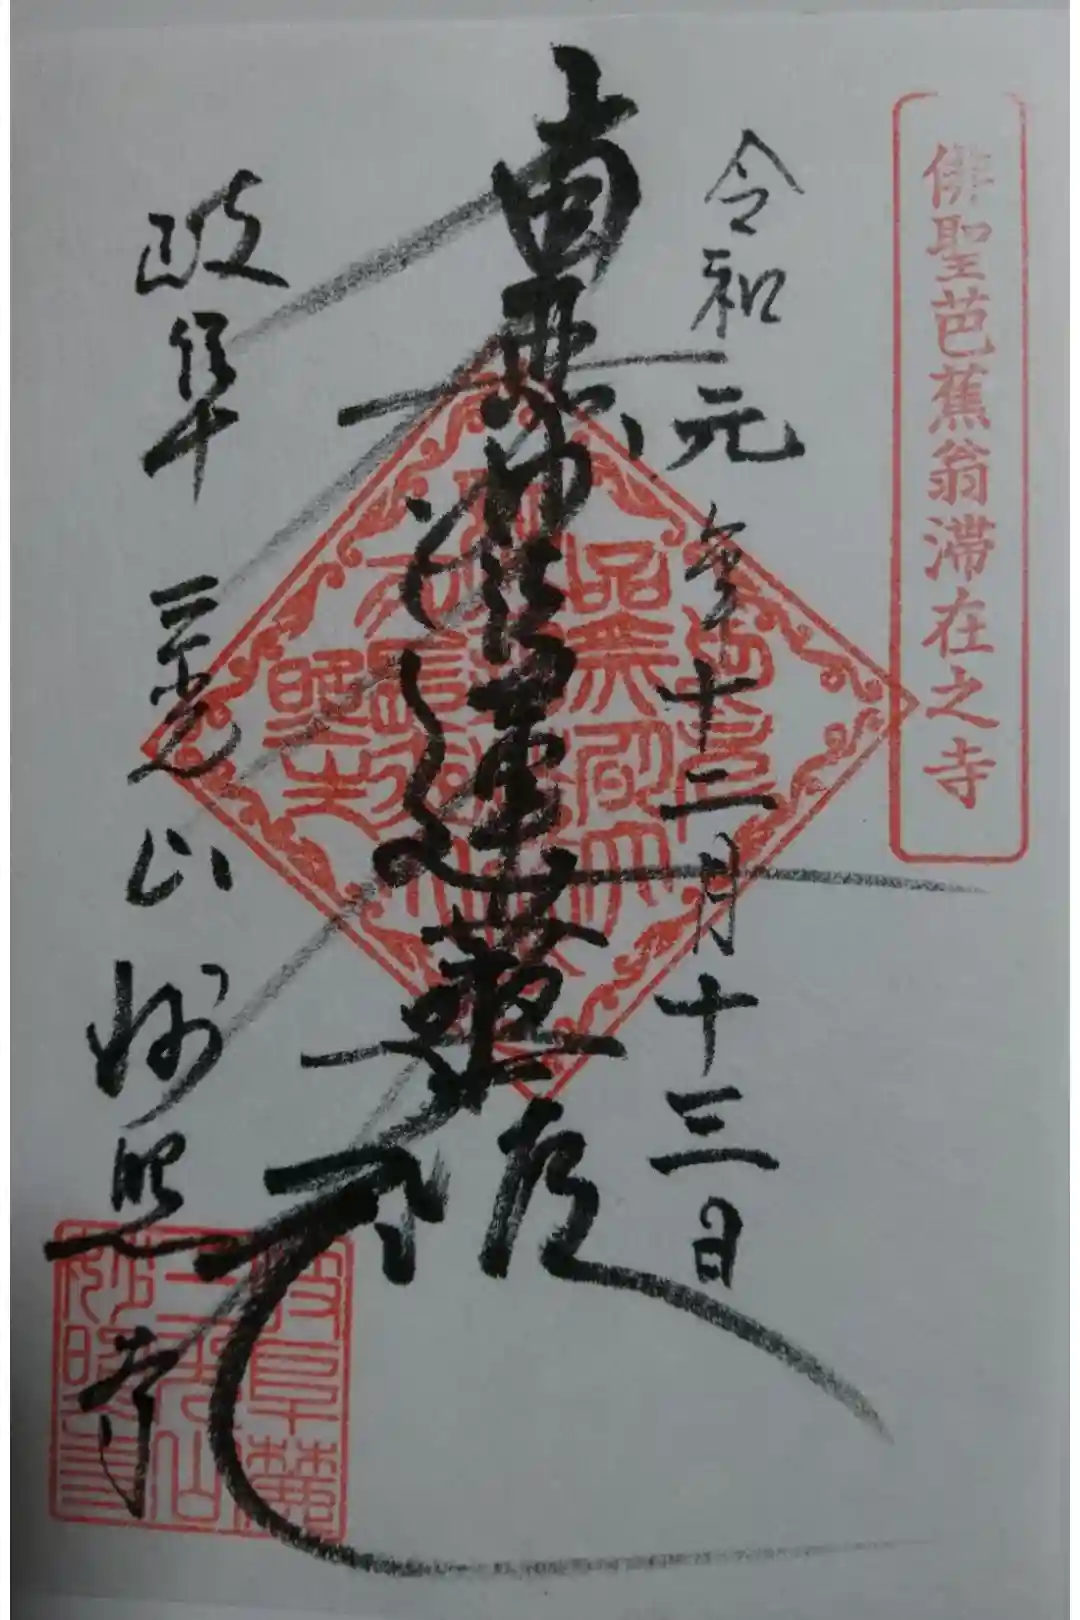 俳聖芭蕉翁滞在之寺
令和元年十二月十三日
南無妙法蓮華経
岐阜 三光山 妙照寺